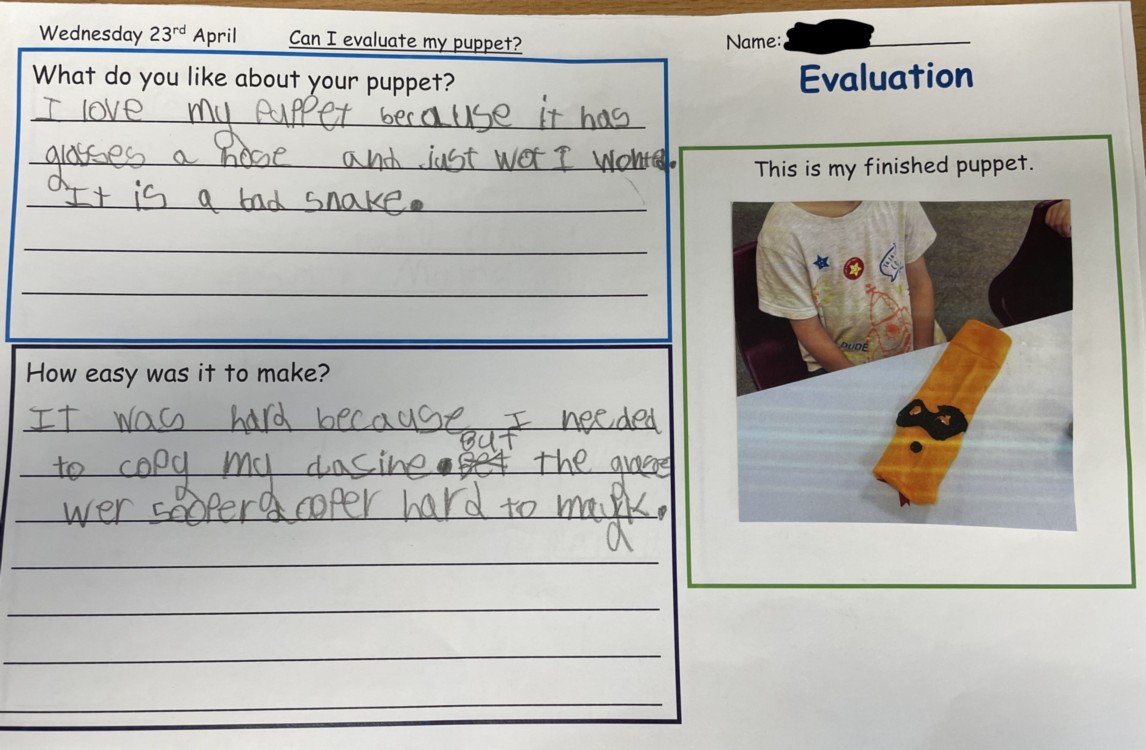 Wednesday 23rd April
Can I evaluate my puppet?
Name:
Evaluation
What do you like about your puppet?
I love my puppet because it has
glasses a nose and just wot I wonted.
It is a bad snake.
How easy was it to make?
It was hard because I needed
to copy my dasine. But the glasse
wer sooper dooper hard to mayk.
This is my finished puppet.
DUDE